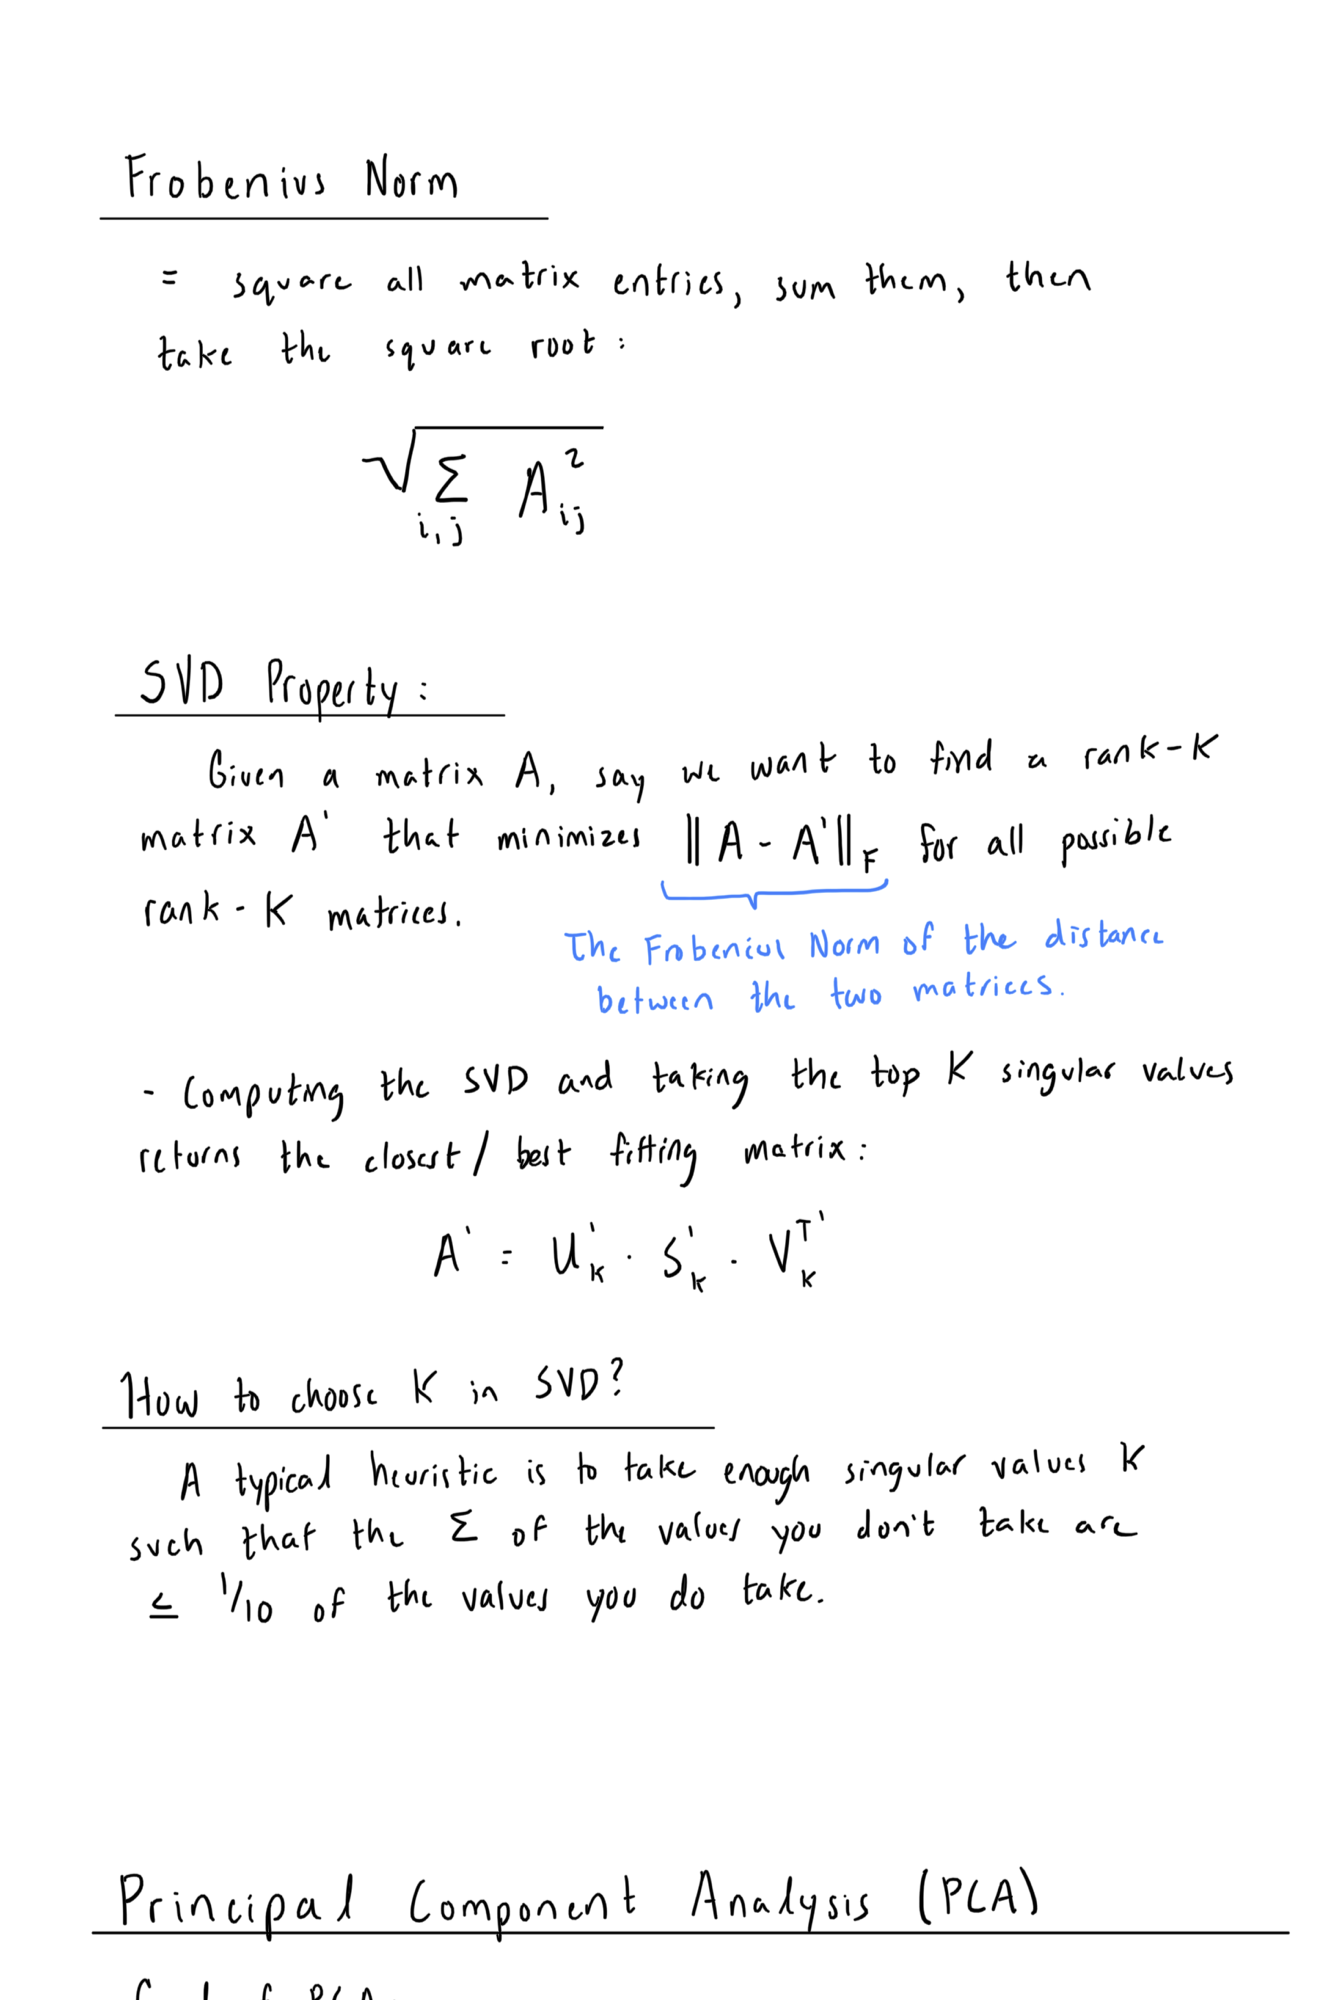 Frobenius Norm
= square all matrix entries, sum them, then
take the square root :
√ Σ A²ij
i,j
SVD Property :
Given a matrix A, say we want to find a rank-K
matrix A' that minimizes || A - A' ||F for all possible
rank-K matrices.
The Frobenius Norm of the distance
between the two matrices.
- Computing the SVD and taking the top K singular values
returns the closest / best fitting matrix :
A' = U'k · S'k · V^T'k
How to choose K in SVD?
A typical heuristic is to take enough singular values K
such that the Σ of the values you don't take are
≤ 1/10 of the values you do take.
Principal Component Analysis (PCA)